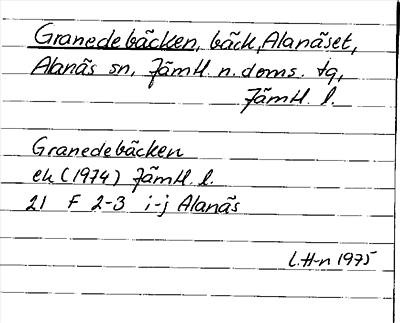 Granedebäcken, bäck, Alanäset,
Alanäs sn, Jämtl. n. doms. tg,
Jämtl. l.
Granedebäcken
ek (1974) Jämtl. l.
21 F 2-3 i-j Alanäs
L.H-n 1975